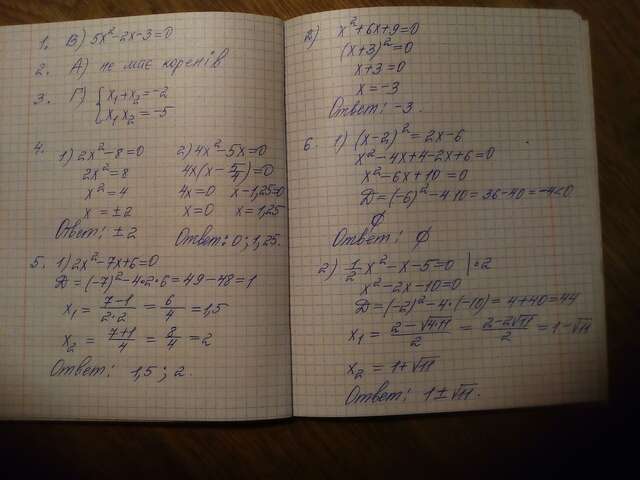 1. В) 5x² - 2x - 3 = 0
2. А) не має коренів
3. Г) { x₁ + x₂ = -2
x₁x₂ = -5
4.
1) 2x² - 8 = 0
2x² = 8
x² = 4
x = ±2
Ответ: ±2
2) 4x² - 5x = 0
4x(x - 5/4) = 0
4x = 0 x - 1,25 = 0
x = 0 x = 1,25
Ответ: 0; 1,25.
5. 1) 2x² - 7x + 6 = 0
Д = (-7)² - 4·2·6 = 49 - 48 = 1
x₁ = (7-1)/(2·2) = 6/4 = 1,5
x₂ = (7+1)/4 = 8/4 = 2
Ответ: 1,5; 2.
2) x² + 6x + 9 = 0
(x+3)² = 0
x + 3 = 0
x = -3
Ответ: -3.
6. 1) (x-2)² = 2x - 6
x² - 4x + 4 - 2x + 6 = 0
x² - 6x + 10 = 0
Д = (-6)² - 4·10 = 36 - 40 = -4 < 0
∅
Ответ: ∅
2) 1/2 x² - x - 5 = 0 |·2
x² - 2x - 10 = 0
Д = (-2)² - 4·(-10) = 4 + 40 = 44
x₁ = (2 - √4·11)/2 = (2 - 2√11)/2 = 1 - √11
x₂ = 1 + √11
Ответ: 1 ± √11.